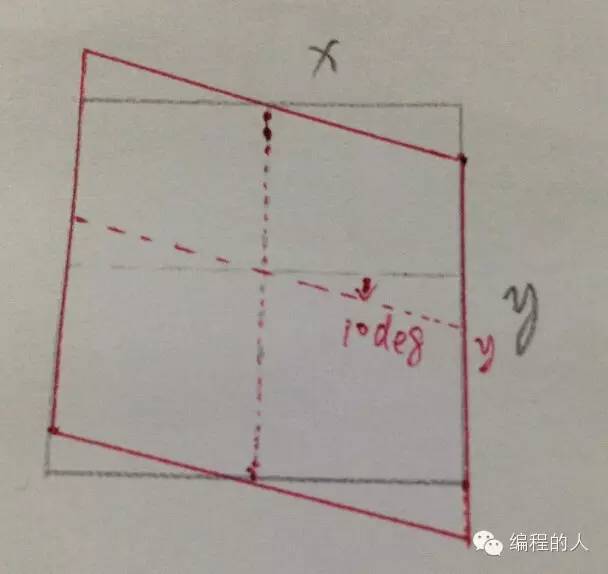 x
y
10deg
y
编程的人